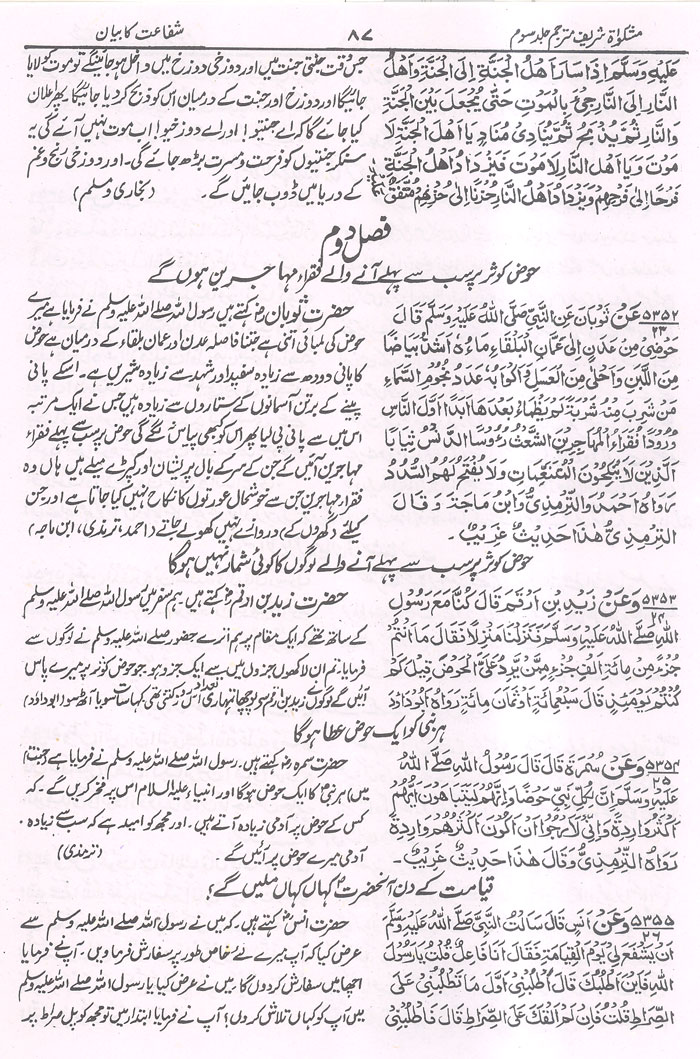 مشکوٰۃ شریف مترجم جلد سوم ۸۷ شفاعت کا بیان
عَلَيْهِ وَسَلَّمَ اِذَا صَارَ اَهْلُ الْجَنَّةِ اِلَى الْجَنَّةِ وَاَهْلُ
النَّارِ اِلَى النَّارِ جِيْءَ بِالْمَوْتِ حَتّٰى يُجْعَلَ بَيْنَ الْجَنَّةِ
وَالنَّارِ ثُمَّ يُذْبَحُ ثُمَّ يُنَادِيْ مُنَادٍ يَا اَهْلَ الْجَنَّةِ لَا
مَوْتَ وَيَا اَهْلَ النَّارِ لَا مَوْتَ فَيَزْدَادُ اَهْلُ الْجَنَّةِ
فَرَحًا اِلٰى فَرَحِهِمْ وَيَزْدَادُ اَهْلُ النَّارِ حُزْنًا اِلٰى حُزْنِهِمْ مُتَّفَقٌ عَلَيْهِ
جس وقت جنتی جنت میں اور دوزخی دوزخ میں داخل ہو جائینگے تو موت کو لایا
جائیگا اور دوزخ اور جنت کے درمیان اس کو ذبح کر دیا جائیگا پھر اعلان
کیا جائے گا کہ اے جنتیو! اور اے دوزخیو! اب موت نہیں آئے گی یہ
سنکر جنتیوں کو فرحت و مسرت بڑھ جائے گی۔ اور دوزخی رنج و غم
کے دریا میں ڈوب جائیں گے۔ (بخاری ومسلم)
فصل دوم
حوض کوثر پر سب سے پہلے آنے والے فقراء مہاجرین ہوں گے
۵۳۵۲ ۲۳ عَنْ ثَوْبَانَ عَنِ النَّبِيِّ صَلَّى اللهُ عَلَيْهِ وَسَلَّمَ قَالَ
حَوْضِيْ مِنْ عَدَنٍ اِلٰى عَمَّانَ الْبَلْقَاءِ مَاءُهٗ اَشَدُّ بَيَاضًا
مِنَ اللَّبَنِ وَاَحْلٰى مِنَ الْعَسَلِ وَاَكْوَابُهٗ عَدَدُ نُجُوْمِ السَّمَاءِ
مَنْ شَرِبَ مِنْهُ شَرْبَةً لَمْ يَظْمَأْ بَعْدَهَا اَبَدًا اَوَّلُ النَّاسِ
وُرُوْدًا فُقَرَاءُ الْمُهَاجِرِيْنَ الشُّعْثُ رُءُوْسًا الدُّنْسُ ثِيَابًا
الَّذِيْنَ لَا يَنْكِحُوْنَ الْمُتَنَعِّمَاتِ وَلَا يُفْتَحُ لَهُمُ السُّدَدُ
رَوَاهُ اَحْمَدُ وَالتِّرْمِذِيُّ وَابْنُ مَاجَةَ وَقَالَ
التِّرْمِذِيُّ هٰذَا حَدِيْثٌ غَرِيْبٌ۔
حضرت ثوبان رض کہتے ہیں رسول اللہ صلی اللہ علیہ وسلم نے فرمایا ہے میرے
حوض کی لمبائی اتنی ہے جتنا فاصلہ عدن اور عمان بلقاء کے درمیان ہے حوض
کا پانی دودھ سے زیادہ سفید اور شہد سے زیادہ شیریں ہے۔ اسکے پانی
پینے کے برتن آسمانوں کے ستاروں سے زیادہ ہیں جس نے ایک مرتبہ
اس میں سے پانی پی لیا پھر اس کو کبھی پیاس نہ لگے گی حوض پر سب سے پہلے فقراء
مہاجرین آئیں گے جن کے سر کے بال پریشان اور کپڑے میلے ہیں ہاں وہ
فقراء مہاجرین جن سے خوشحال عورتوں کا نکاح نہیں کیا جاتا ہے اور جن
کیلئے (گھروں کے) دروازے نہیں کھولے جاتے (احمد، ترمذی، ابن ماجہ)
حوض کوثر پر سب سے پہلے آنے والے لوگوں کا کوئی شمار نہیں ہوگا
۵۳۵۳ ۲۴ وَعَنْ زَيْدِ بْنِ اَرْقَمَ قَالَ كُنَّا مَعَ رَسُوْلِ
اللهِ صَلَّى اللهُ عَلَيْهِ وَسَلَّمَ فَنَزَلْنَا مَنْزِلًا فَقَالَ مَا اَنْتُمْ
جُزْءٌ مِنْ مِائَةِ اَلْفِ جُزْءٍ مِمَّنْ يَرِدُ عَلَيَّ الْحَوْضَ قِيْلَ كَمْ
كُنْتُمْ يَوْمَئِذٍ قَالَ سَبْعَمِائَةٍ اَوْ ثَمَانَ مِائَةٍ رَوَاهُ اَبُوْدَاوٗدَ
حضرت زید بن ارقم رض کہتے ہیں۔ ہم سفر میں رسول اللہ صلے اللہ علیہ وسلم
کے ساتھ تھے کہ ایک مقام پر ہم اترے حضور صلے اللہ علیہ وسلم نے لوگوں سے
فرمایا۔ تم ان لاکھوں جزوں میں سے ایک جزد ہو۔ جو حوض کوثر پر میرے پاس
آئیں گے لوگوں نے زید بن ارقم سے پوچھا تمہاری تعداد اس روز کتنی تھی کہا سات سو یا آٹھ سو (ابوداؤد)
ہر نبی کو ایک حوض عطا ہوگا
۵۳۵۴ ۲۵ وَعَنْ سَمُرَةَ قَالَ قَالَ رَسُوْلُ اللهِ صَلَّى اللهُ
عَلَيْهِ وَسَلَّمَ اِنَّ لِكُلِّ نَبِيٍّ حَوْضًا وَاِنَّهُمْ لَيَتَبَاهَوْنَ اَيُّهُمْ
اَكْثَرُ وَارِدَةً وَاِنِّيْ لَاَرْجُوْ اَنْ اَكُوْنَ اَكْثَرَهُمْ وَارِدَةً
رَوَاهُ التِّرْمِذِيُّ وَقَالَ هٰذَا حَدِيْثٌ غَرِيْبٌ۔
حضرت سمرہ رض کہتے ہیں۔ رسول اللہ صلے اللہ علیہ وسلم نے فرمایا ہے (جنت)
میں ہر نبی کا ایک حوض ہوگا اور انبیاء علیہ السلام اس پر فخر کریں گے۔ کہ
کس کے حوض پر آدمی زیادہ آتے ہیں۔ اور مجھ کو امید ہے کہ سب سے زیادہ
آدمی میرے حوض پر آئیں گے۔ (ترمذی)
قیامت کے دن آنحضرت کہاں کہاں ملیں گے؟
۵۳۵۵ ۲۶ وَعَنْ اَنَسٍ قَالَ سَاَلْتُ النَّبِيَّ صَلَّى اللهُ عَلَيْهِ وَسَلَّمَ
اَنْ يَشْفَعَ لِيْ يَوْمَ الْقِيٰمَةِ فَقَالَ اَنَا فَاعِلٌ قُلْتُ يَا رَسُوْلَ
اللهِ فَاَيْنَ اَطْلُبُكَ قَالَ اُطْلُبْنِيْ اَوَّلَ مَا تَطْلُبُنِيْ عَلَى
الصِّرَاطِ قُلْتُ فَاِنْ لَمْ اَلْقَكَ عَلَى الصِّرَاطِ قَالَ فَاطْلُبْنِيْ
حضرت انس رض کہتے ہیں۔ کہ میں نے رسول اللہ صلے اللہ علیہ وسلم سے
عرض کیا کہ آپ میرے لئے خاص طور پر سفارش فرماویں۔ آپ نے فرمایا
اچھا میں سفارش کردوں گا۔ میں نے عرض کیا یا رسول اللہ صلے اللہ علیہ وسلم
میں آپ کو کہاں تلاش کروں؟ آپ نے فرمایا ابتدا میں تو مجھ کو پل صراط پر